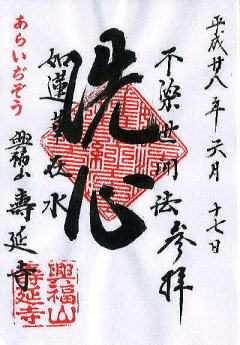 平成廿八年六月十七日
不染世間法
参拝
洗心
如蓮華在水
あらいぢぞう
興福山
寿延寺
興福山
寿延寺